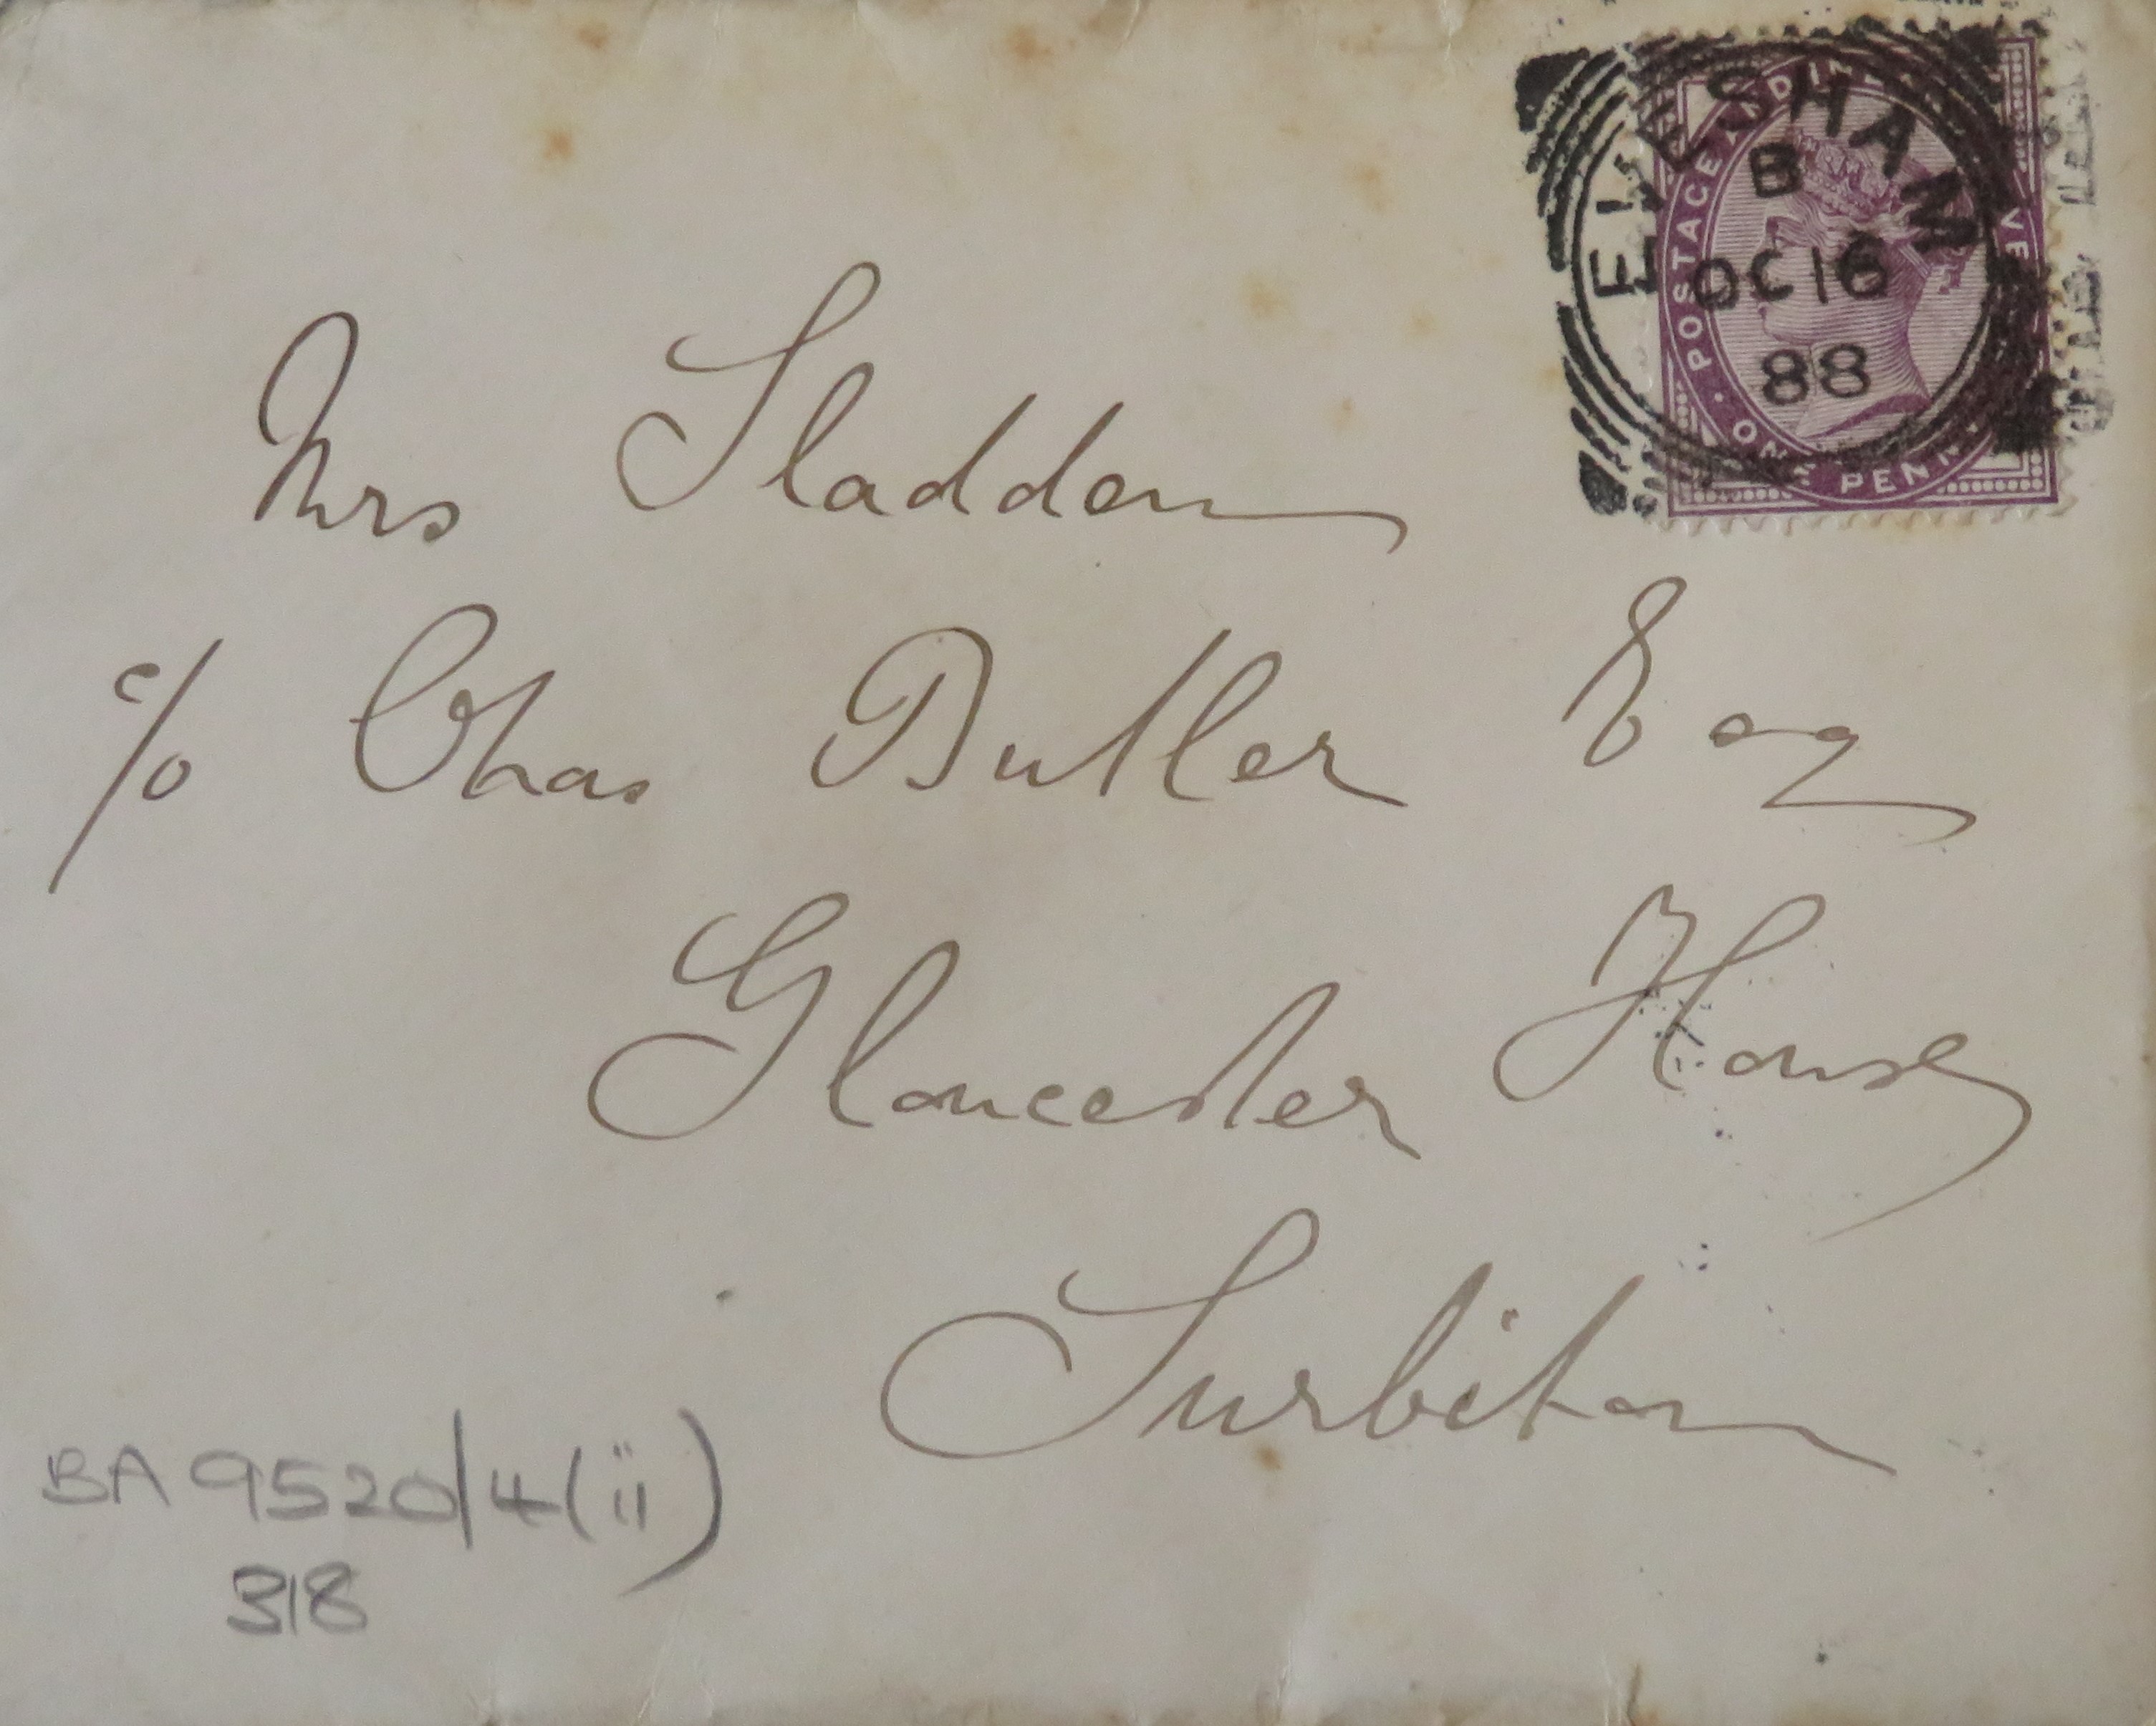 EVESHAM
B
OC 16
88
POSTAGE AND INLAND REVENUE
ONE PENNY
Mrs Sladden
c/o Chas Butler Esq
Gloucester House
Surbiton
BA 9520/4(ii)
318